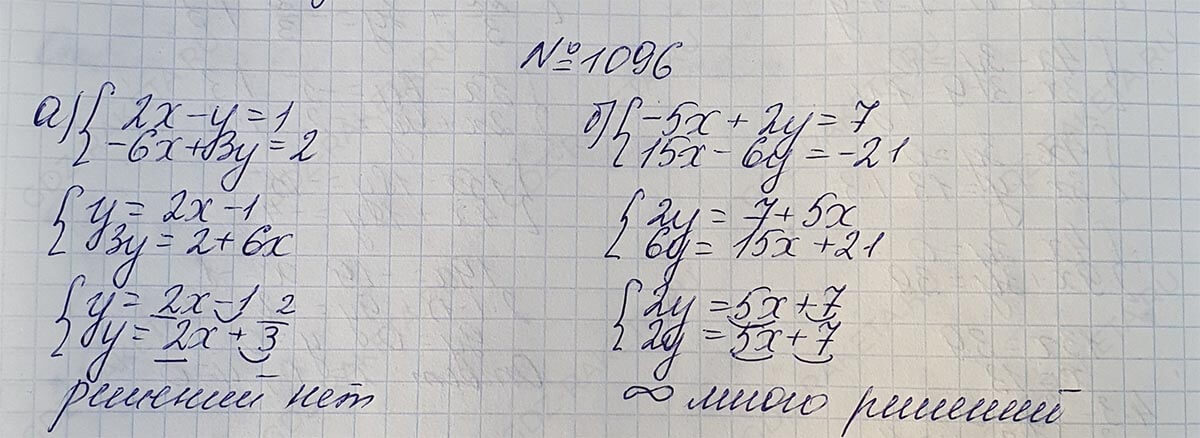 №1096
а) { 2x - y = 1
{ -6x + 3y = 2
{ y = 2x - 1
{ 3y = 2 + 6x
{ y = 2x - 1
{ y = 2x + 2/3
решений нет
б) { -5x + 2y = 7
{ 15x - 6y = -21
{ 2y = 7 + 5x
{ 6y = 15x + 21
{ 2y = 5x + 7
{ 2y = 5x + 7
∞ много решений